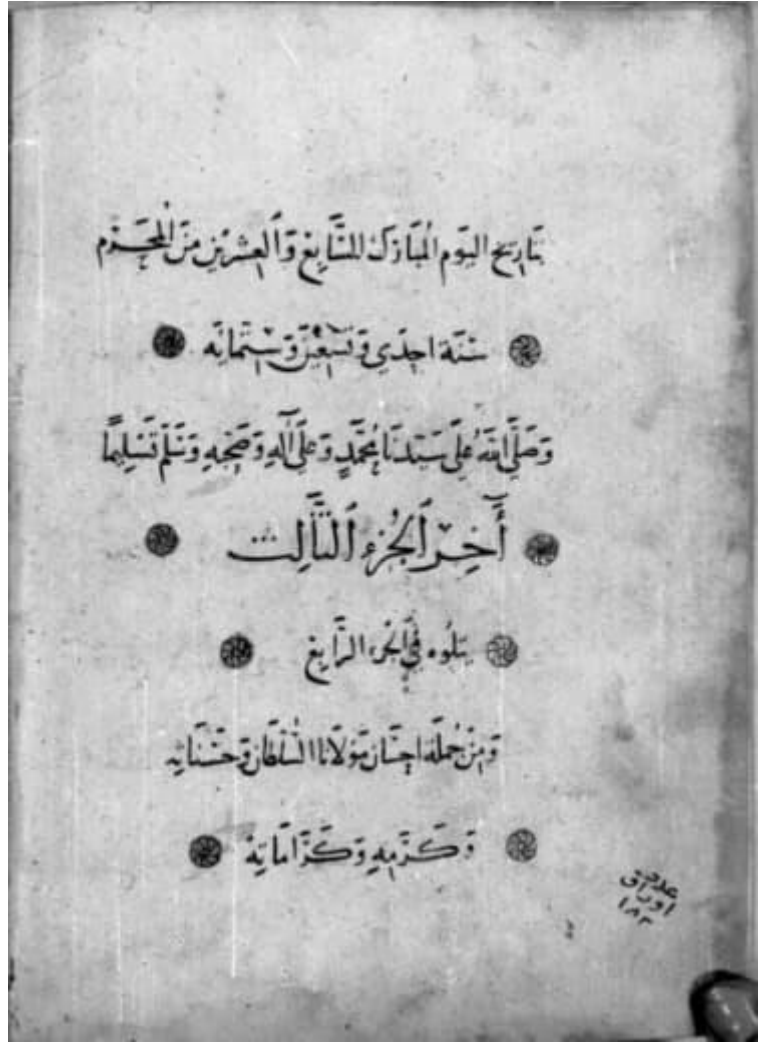 بتاريخ اليوم المبارك السابع والعشرين من المحرم
سنة احدي وتسعين وستمائه
وصلى الله على سيدنا محمد وعلى آله وصحبه وسلم تسليما
آخر الجزء الثالث
يتلوه في الجزء الرابع
ومن جملة احسان مولانا السلطان وحسناته
وكرمه وكراماته
عدد
اوراق
١٨٣